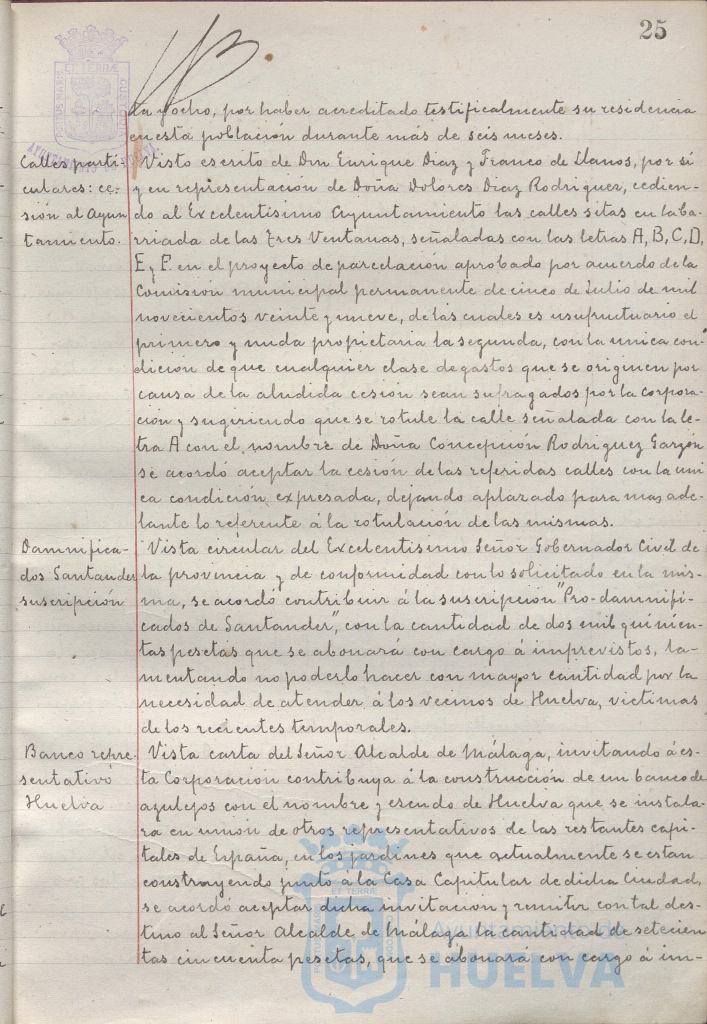 25
ta y ocho, por haber acreditado testificalmente su residencia
en esta población durante más de seis meses.
Calles parti-
culares: ce-
sión al Ayun
tamiento.
Visto escrito de Don Enrique Diaz y Franco de Llanos, por sí
y en representación de Doña Dolores Diaz Rodriguez, cedien-
do al Excelentísimo Ayuntamiento las calles sitas en la Ba-
rriada de las Tres Ventanas, señaladas con las letras A, B, C, D,
E, y F. en el proyecto de parcelación aprobado por acuerdo de la
Comisión municipal permanente de cinco de Julio de mil
novecientos veinte y nueve, de las cuales es usufructuario el
primero y nuda propietaria la segunda, con la unica con-
dición de que cualquier clase de gastos que se originen por
causa de la aludida cesión sean sufragados por la Corpora-
ción y sugiriendo que se rotule la calle señalada con la le-
tra A con el nombre de Doña Concepción Rodriguez Garzón
se acordó aceptar la cesión de las referidas calles con la uni
ca condición expresada, dejando aplazado para mas ade-
lante lo referente á la rotulación de las mismas.
Damnifica-
dos Santander
suscripción
Vista circular del Excelentísimo Señor Gobernador Civil de
la provincia y de conformidad con lo solicitado en la mis-
ma, se acordó contribuir á la suscripción "Pro-damnifi-
cados de Santander", con la cantidad de dos mil quinien-
tas pesetas que se abonará con cargo á imprevistos, la-
mentando no poderlo hacer con mayor cantidad por la
necesidad de atender á los vecinos de Huelva, victimas
de los recientes temporales.
Banco repre-
sentativo
Huelva
Vista carta del Señor Alcalde de Málaga, invitando á es-
ta Corporación contribuya á la construcción de un banco de
azulejos con el nombre y escudo de Huelva que se instala-
rá en unión de otros representativos de las restantes capi-
tales de España, en los jardines que actualmente se estan
construyendo junto á la Casa Capitular de dicha Ciudad,
se acordó aceptar dicha invitación y remitir con tal des-
tino al Señor Alcalde de Málaga la cantidad de setecien
tas cincuenta pesetas, que se abonará con cargo á im-
Ayuntamiento de
HUELVA